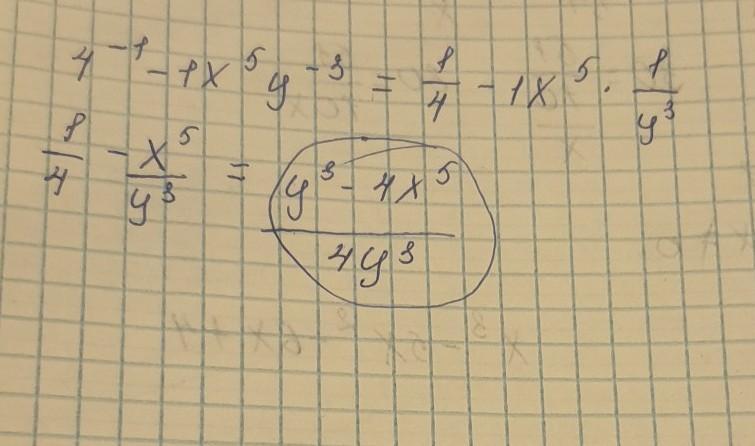 4⁻¹ - 1x⁵y⁻³ = 1/4 - 1x⁵ · 1/y³
1/4 - x⁵/y³ = (y³ - 4x⁵)/(4y³)